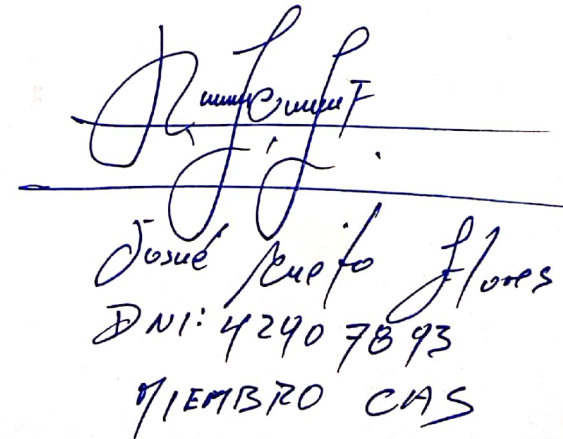 Josué Flores
DNI: 42907893
MIEMBRO CAS